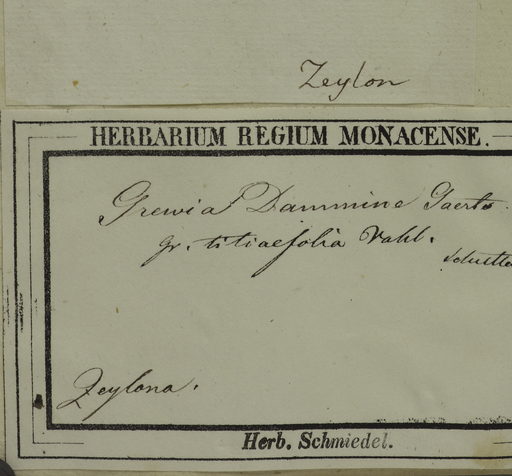 Zeylon
HERBARIUM REGIUM MONACENSE.
Grewia Dammine Gaertn.
Gr. tiliaefolia Vahl.
Zeylona.
Herb. Schmiedel.